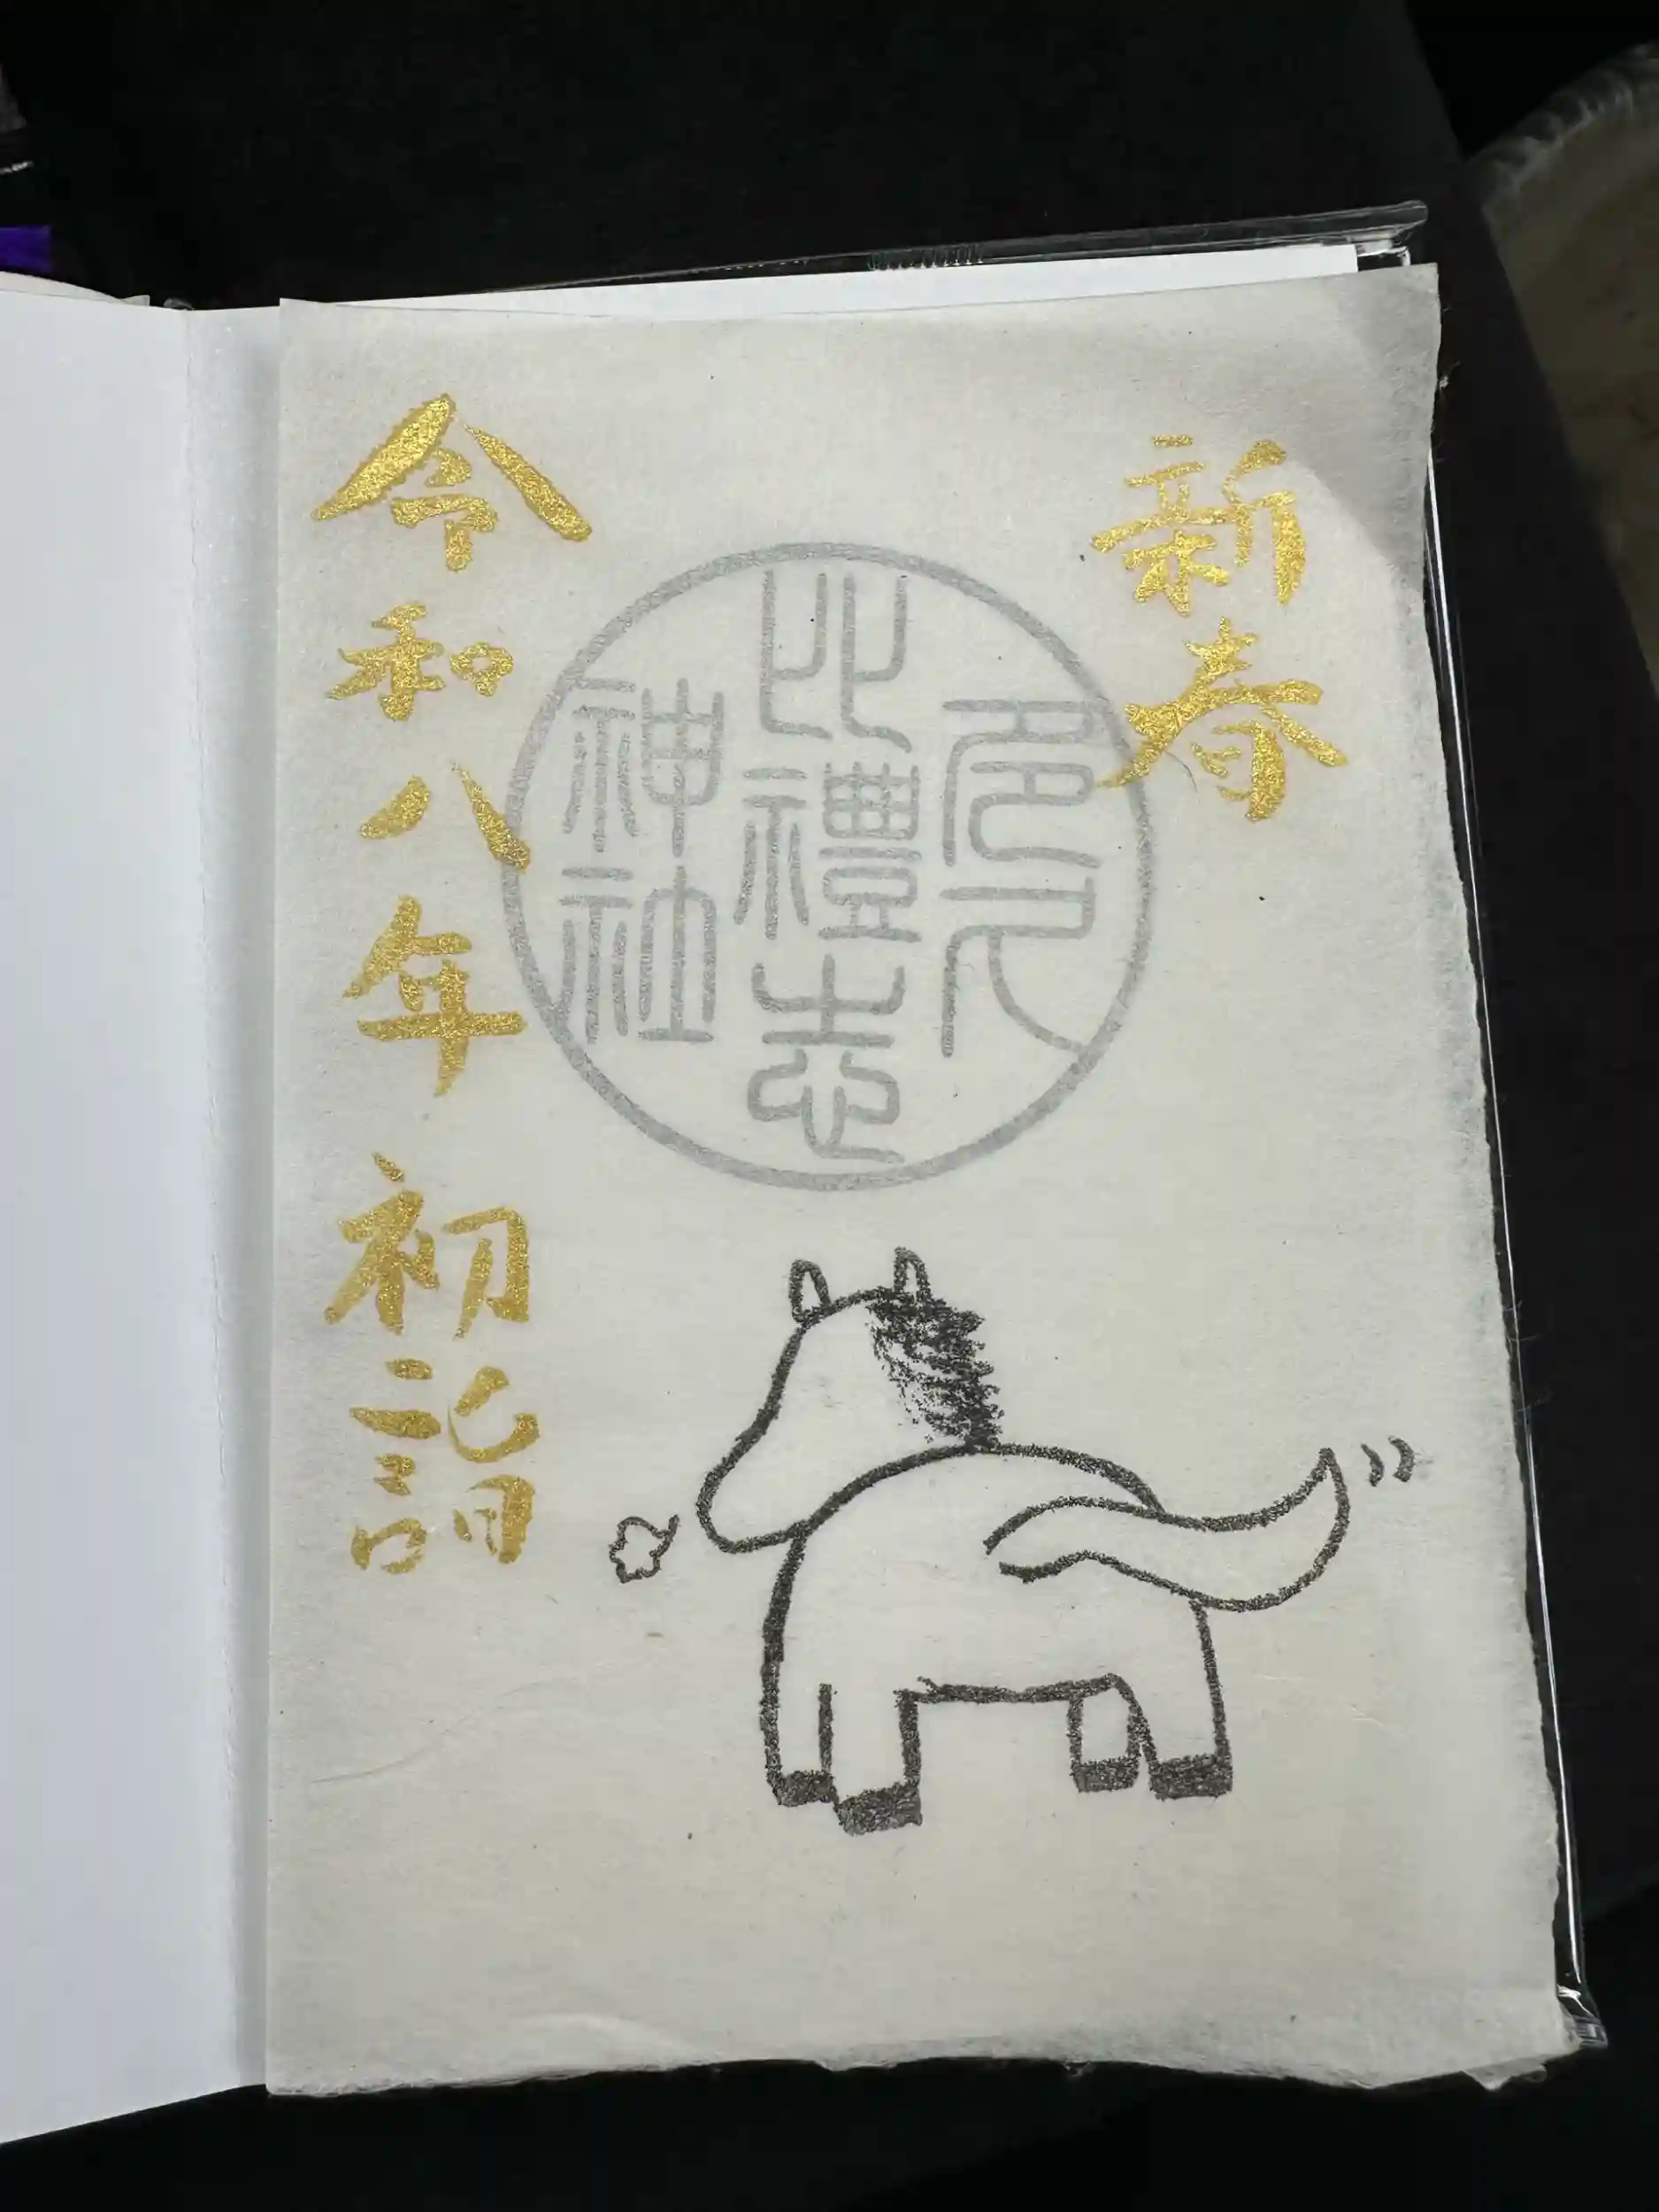 新春
多久
比禮志
神社
令和八年 初詣